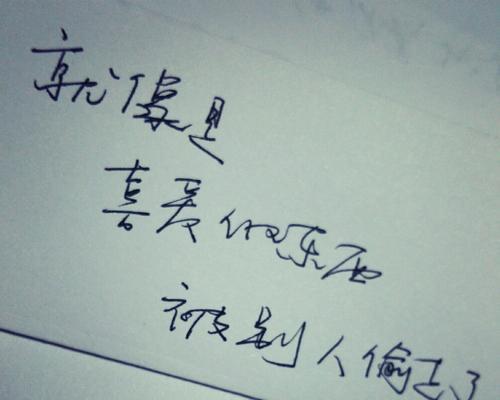 就像是
喜爱的东西
被别人偷走了